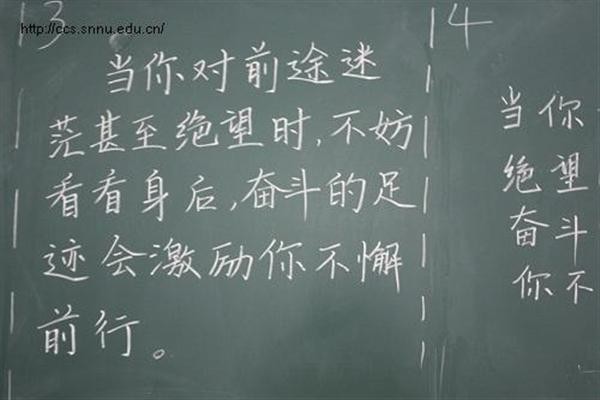 http://ccs.snnu.edu.cn/
13
当你对前途迷
茫甚至绝望时,不妨
看看身后,奋斗的足
迹会激励你不懈
前行。
14
当你
绝望
奋斗
你不